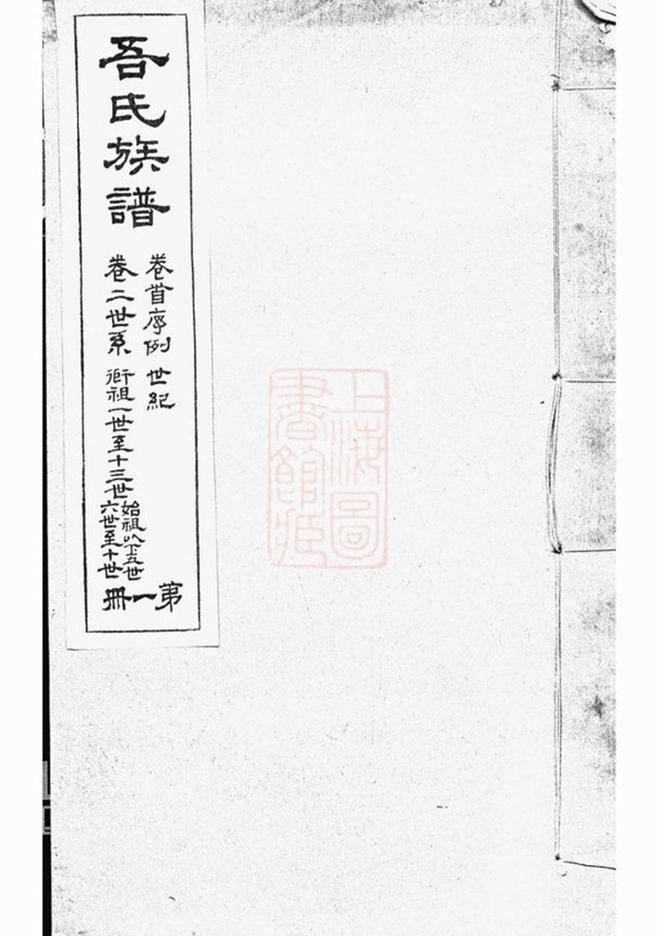 吾氏族譜
卷首序例 世紀
卷二世系 衍祖一世至十三世
始祖以下五世
六世至十世
第一冊
上海圖
書館藏